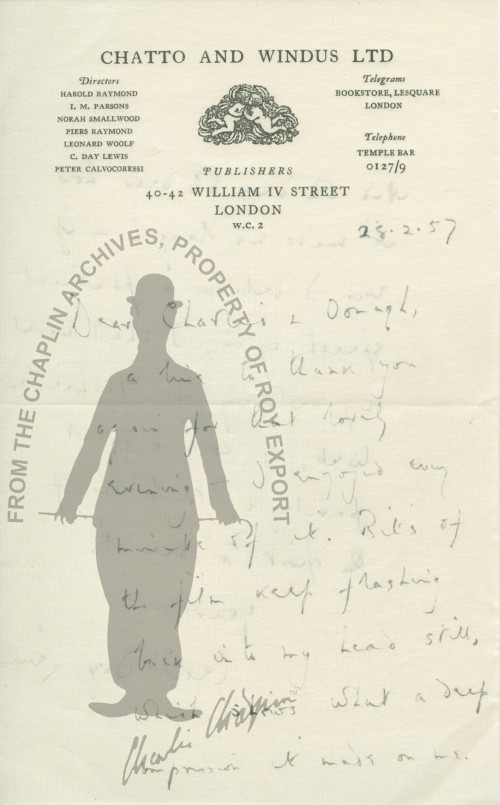 CHATTO AND WINDUS LTD
Directors
HAROLD RAYMOND
I. M. PARSONS
NORAH SMALLWOOD
PIERS RAYMOND
LEONARD WOOLF
C. DAY LEWIS
PETER CALVOCORESSI
Telegrams
BOOKSTORE, LESQUARE
LONDON
Telephone
TEMPLE BAR
0127/9
PUBLISHERS
40-42 WILLIAM IV STREET
LONDON
W.C. 2
28.2.57
Dear Charles & Oonagh,
a line to thank you
again for that lovely
evening - I enjoyed every
minute of it. Bits of
the film keep flashing
back into my head still,
which shows what a deep
impression it made on me.
FROM THE CHAPLIN ARCHIVES, PROPERTY OF ROY EXPORT
Charlie Chaplin